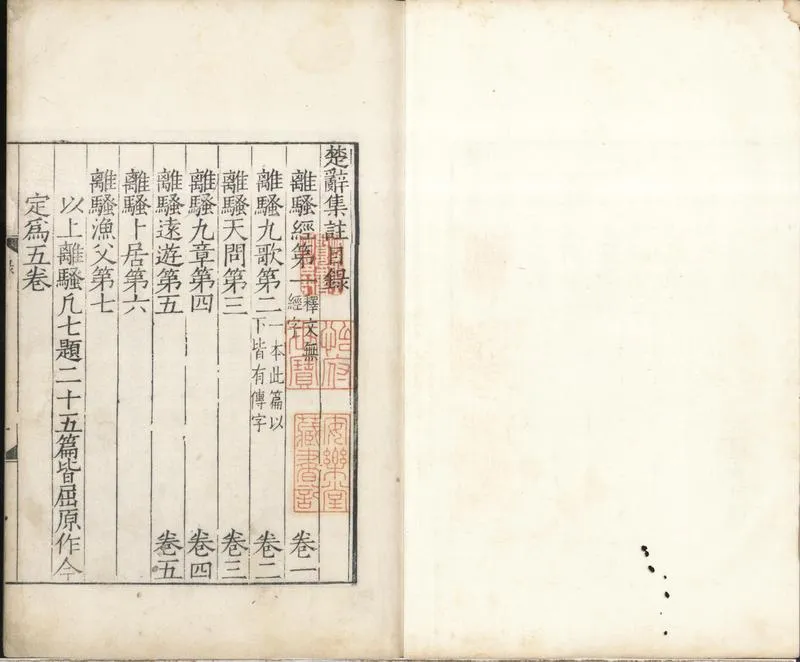 楚辭集註目錄
離騷經第一 釋文無經字 卷一
離騷九歌第二 一本此篇以下皆有傳字 卷二
離騷天問第三 卷三
離騷九章第四 卷四
離騷遠遊第五 卷五
離騷卜居第六
離騷漁父第七
以上離騷凡七題二十五篇皆屈原作今
定爲五卷
怡府
世寶
安樂堂
藏書記